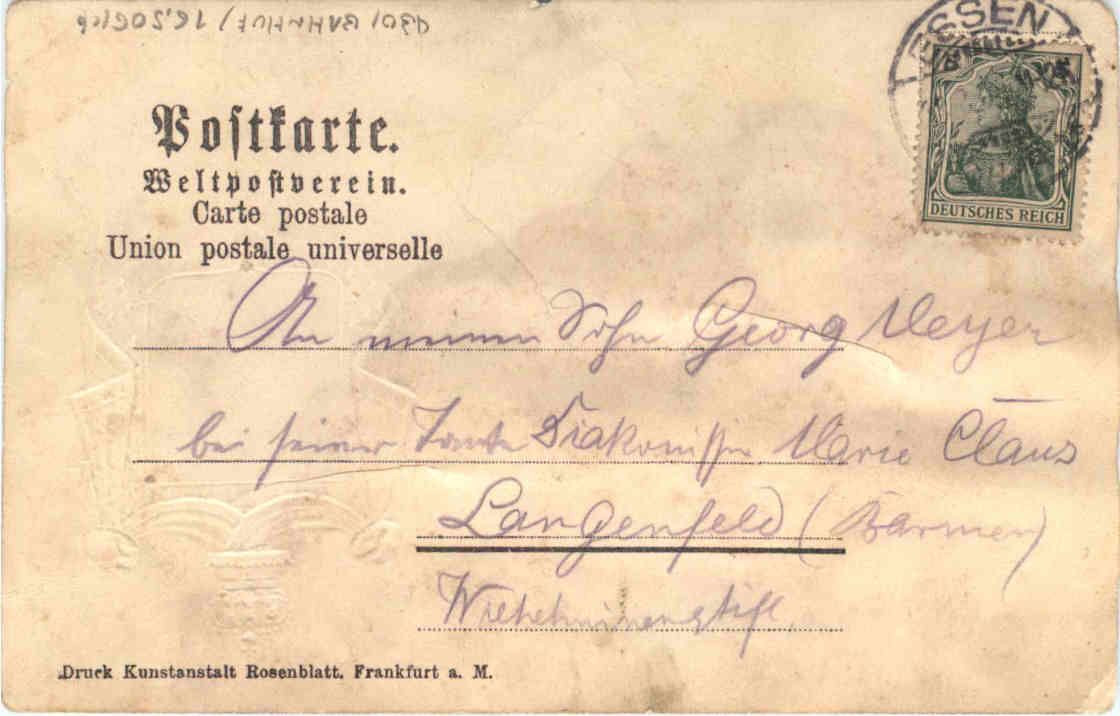 ESSEN
DEUTSCHES REICH
Postkarte.
Weltpostverein.
Carte postale
Union postale universelle
An meinen Sohn Georg Meyer
bei seiner Tante Diakonissin Marie Claus
Langenfeld (Barmen)
Wilhelminenstift.
Druck Kunstanstalt Rosenblatt, Frankfurt a. M.